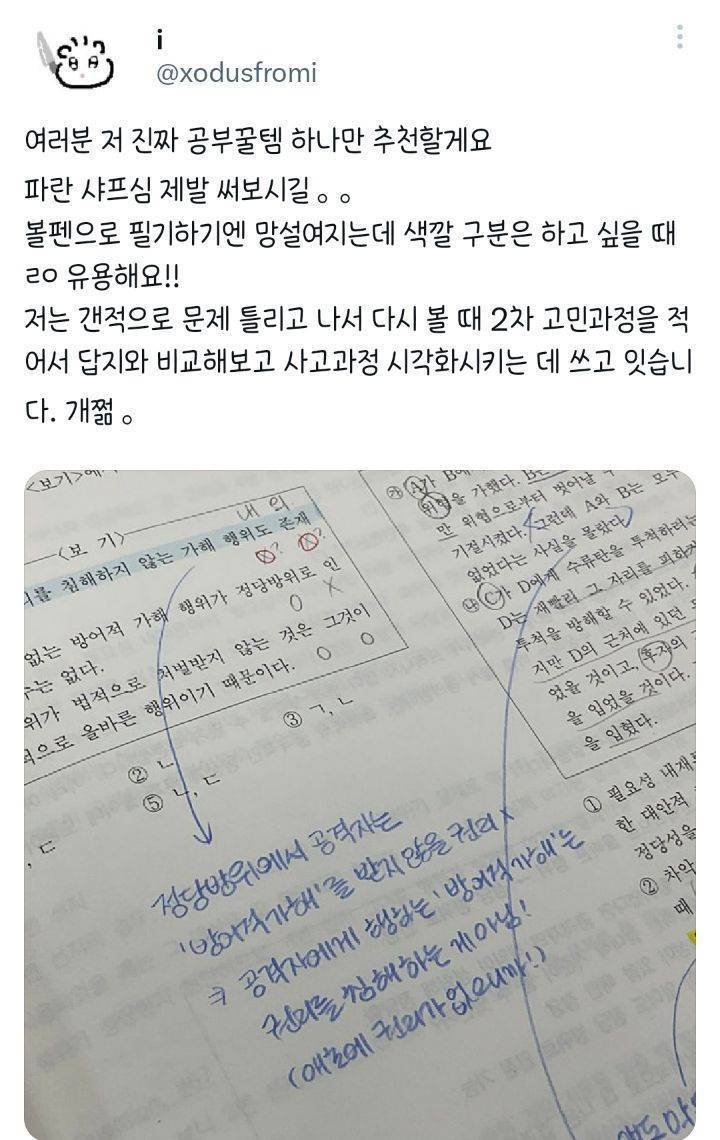 i
@xodusfromi
여러분 저 진짜 공부꿀템 하나만 추천할게요
파란 샤프심 제발 써보시길 。。
볼펜으로 필기하기엔 망설여지는데 색깔 구분은 하고 싶을 때
ㄹㅇ 유용해요!!
저는 갠적으로 문제 틀리고 나서 다시 볼 때 2차 고민과정을 적
어서 답지와 비교해보고 사고과정 시각화시키는 데 쓰고 잇습니
다. 개쩖 。
<보기>에
<보 기>
내 의
를 침해하지 않는 가해 행위도 존재
없는 방어적 가해 행위가 정당방위로 인
는 없다.
위가 법적으로 처벌받지 않는 것은 그것이
적으로 올바른 행위이기 때문이다.
② ㄴ
③ ㄱ, ㄴ
⑤ ㄴ, ㄷ
, ㄷ
㉮ A가 B에
위협을 가했다. B는
만 위협으로부터 벗어날 수
기절시켰다. 그런데 A와 B는 모두
없었다는 사실을 몰랐다.
㉯ C가 D에게 수류탄을 투척하려는
D는 재빨리 그 자리를 피하
투척을 방해할 수 있었다.
지만 D의 근처에 있던
었을 것이고, 후자의
을 입었을 것이다.
을 입혔다.
① 필요성 내재
한 대안적
정당성을
② 차악
때
정당방위에서 공격자는
'방어적 가해'를 받지 않을 권리 x
→ 공격자에게 행하는 '방어적 가해'는
권리를 침해하는 게 아님!
(애초에 권리가 없으니까!)